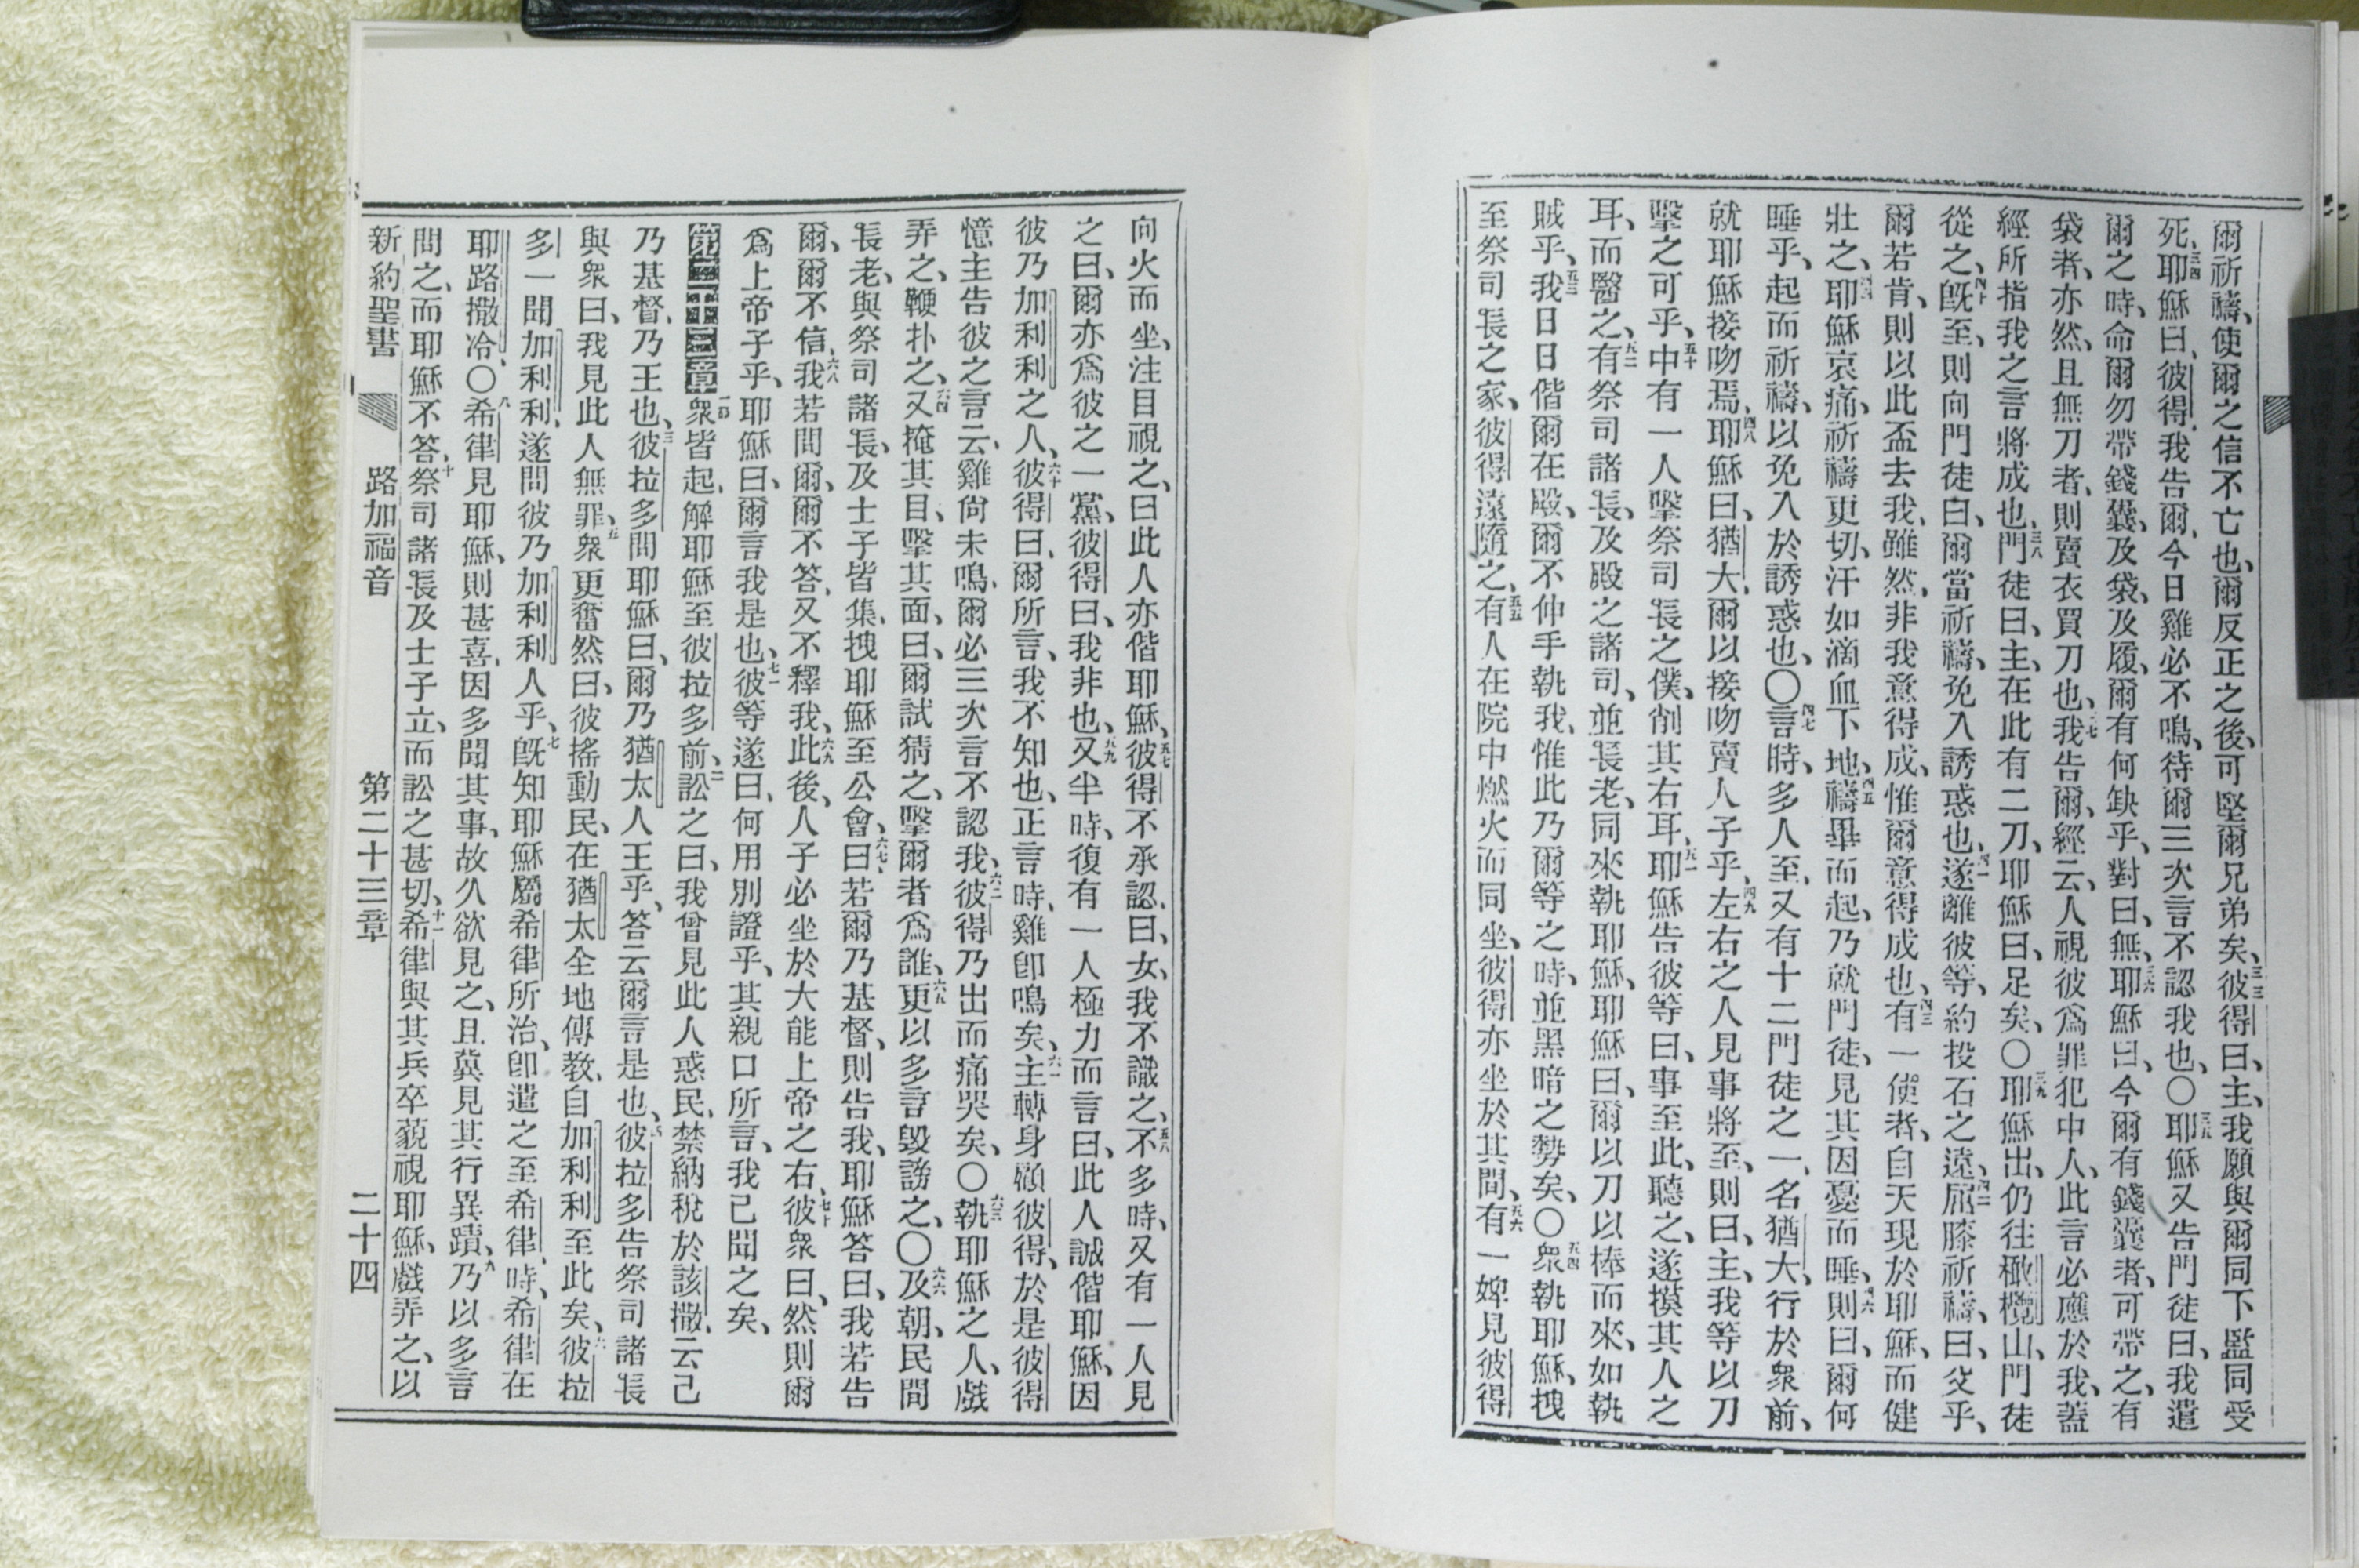 爾祈禱、使爾之信不亡也、爾反正之後、可堅爾兄弟矣、三三彼得曰、主、我願與爾同下監同受
死、三四耶穌曰、彼得、我告爾、今日雞必不鳴、待爾三次言不認我也、〇三五耶穌又告門徒曰、我遣
爾之時、命爾勿帶錢囊、及袋、及履、爾有何缺乎、對曰、無、三六耶穌曰、今爾有錢囊者、可帶之、有
袋者、亦然、且無刀者、則賣衣買刀也、三七我告爾、經云、人視彼爲罪犯中人、此言必應於我、蓋
經所指我之言將成也、三八門徒曰、主、在此有二刀、耶穌曰、足矣、〇三九耶穌出、仍往橄欖山、門徒
從之、四十旣至、則向門徒曰、爾當祈禱、免入誘惑也、四一遂離彼等、約投石之遠、四二屈膝祈禱、曰、父乎、
爾若肯、則以此盃去我、雖然、非我意得成、惟爾意得成也、四三有一使者、自天現於耶穌、而健
壯之、四四耶穌哀痛、祈禱更切、汗如滴血下地、四五禱畢而起、乃就門徒、見其因憂而睡、四六則曰、爾何
睡乎、起而祈禱、以免入於誘惑也、〇四七言時、多人至、又有十二門徒之一、名猶大、行於衆前、
就耶穌接吻焉、四八耶穌曰、猶大、爾以接吻賣人子乎、四九左右之人見事將至、則曰、主、我等以刀
擊之可乎、五十中有一人擊祭司長之僕、削其右耳、五一耶穌告彼等曰、事至此、聽之、遂摸其人之
耳、而醫之、五二有祭司諸長、及殿之諸司、並長老、同來執耶穌、耶穌曰、爾以刀以棒而來、如執
賊乎、五三我日日偕爾在殿、爾不伸手執我、惟此乃爾等之時、並黑暗之勢矣、〇五四衆執耶穌、拽
至祭司長之家、彼得遠隨之、五五有人在院中燃火而同坐、彼得亦坐於其間、五六有一婢見彼得
向火而坐、注目視之、曰此人亦偕耶穌、五七彼得不承認、曰、女、我不識之、五八不多時、又有一人見
之曰、爾亦爲彼之一黨、彼得曰、我非也、五九又半時、復有一人極力而言曰、此人誠偕耶穌、因
彼乃加利利之人、六十彼得曰、爾所言、我不知也、正言時、雞卽鳴矣、六一主轉身顧彼得、於是彼得
憶主告彼之言云、雞尙未鳴、爾必三次言不認我、六二彼得乃出而痛哭矣、〇六三執耶穌之人、戲
弄之、鞭扑之、六四又掩其目、擊其面、曰、爾試猜之、擊爾者爲誰、六五更以多言毀謗之、〇六六及朝、民間
長老、與祭司諸長、及士子皆集、拽耶穌至公會、六七曰、若爾乃基督、則告我、耶穌答曰、我若告
爾、爾不信、六八我若問爾、爾不答、又不釋我、六九此後、人子必坐於大能上帝之右、七十彼衆曰、然則爾
爲上帝子乎、耶穌曰、爾言我是也、七一彼等遂曰、何用別證乎、其親口所言、我已聞之矣、
第二十三章一節衆皆起、解耶穌至彼拉多前、二訟之曰、我曾見此人惑民、禁納稅於該撒、云己
乃基督、乃王也、三彼拉多問耶穌曰、爾乃猶太人王乎、答云爾言是也、四彼拉多告祭司諸長
與衆曰、我見此人無罪、五衆更奮然曰、彼搖動民、在猶太全地傳教、自加利利至此矣、六彼拉
多一聞加利利、遂問彼乃加利利人乎、七旣知耶穌屬希律所治、卽遣之至希律、時、希律在
耶路撒冷、〇八希律見耶穌、則甚喜、因多聞其事、故久欲見之、且冀見其行異蹟、九乃以多言
問之、而耶穌不答、十祭司諸長及士子立、而訟之甚切、十一希律與其兵卒藐視耶穌、戲弄之、以
新約聖書 路加福音 第二十三章 二十四